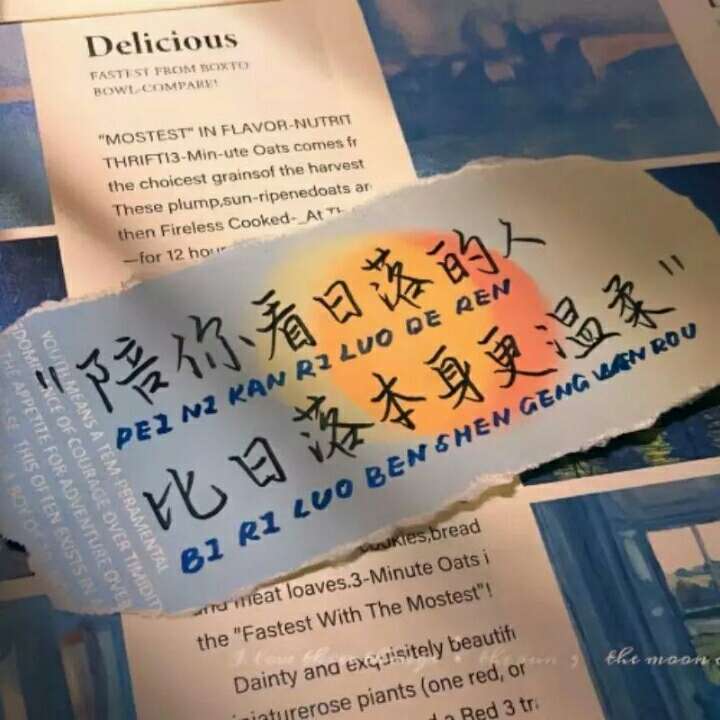 Delicious
FASTEST FROM BOXTO
BOWL-COMPARE!
"MOSTEST" IN FLAVOR-NUTRIT
THRIFTI3-Min-ute Oats comes fr
the choicest grainsof the harvest
These plump,sun-ripenedoats ar
then Fireless Cooked-_At
—for 12 hour
"陪你看日落的人
PEI NI KAN RI LUO DE REN
比日落本身更温柔"
BI RI LUO BEN SHEN GENG WEN ROU
YOUTH MEANS A TEM PERAMENTAL
DOMINANCE OF COURAGE OVER TIMIDITY
THE APPETITE FOR ADVENTURE OVER
THIS OFTEN EXISTS IN
cookies,bread
and meat loaves.3-Minute Oats i
the "Fastest With The Mostest"!
Dainty and exquisitely beautifu
iniaturerose piants (one red, or
a Bed 3 tra
the sun
the moon